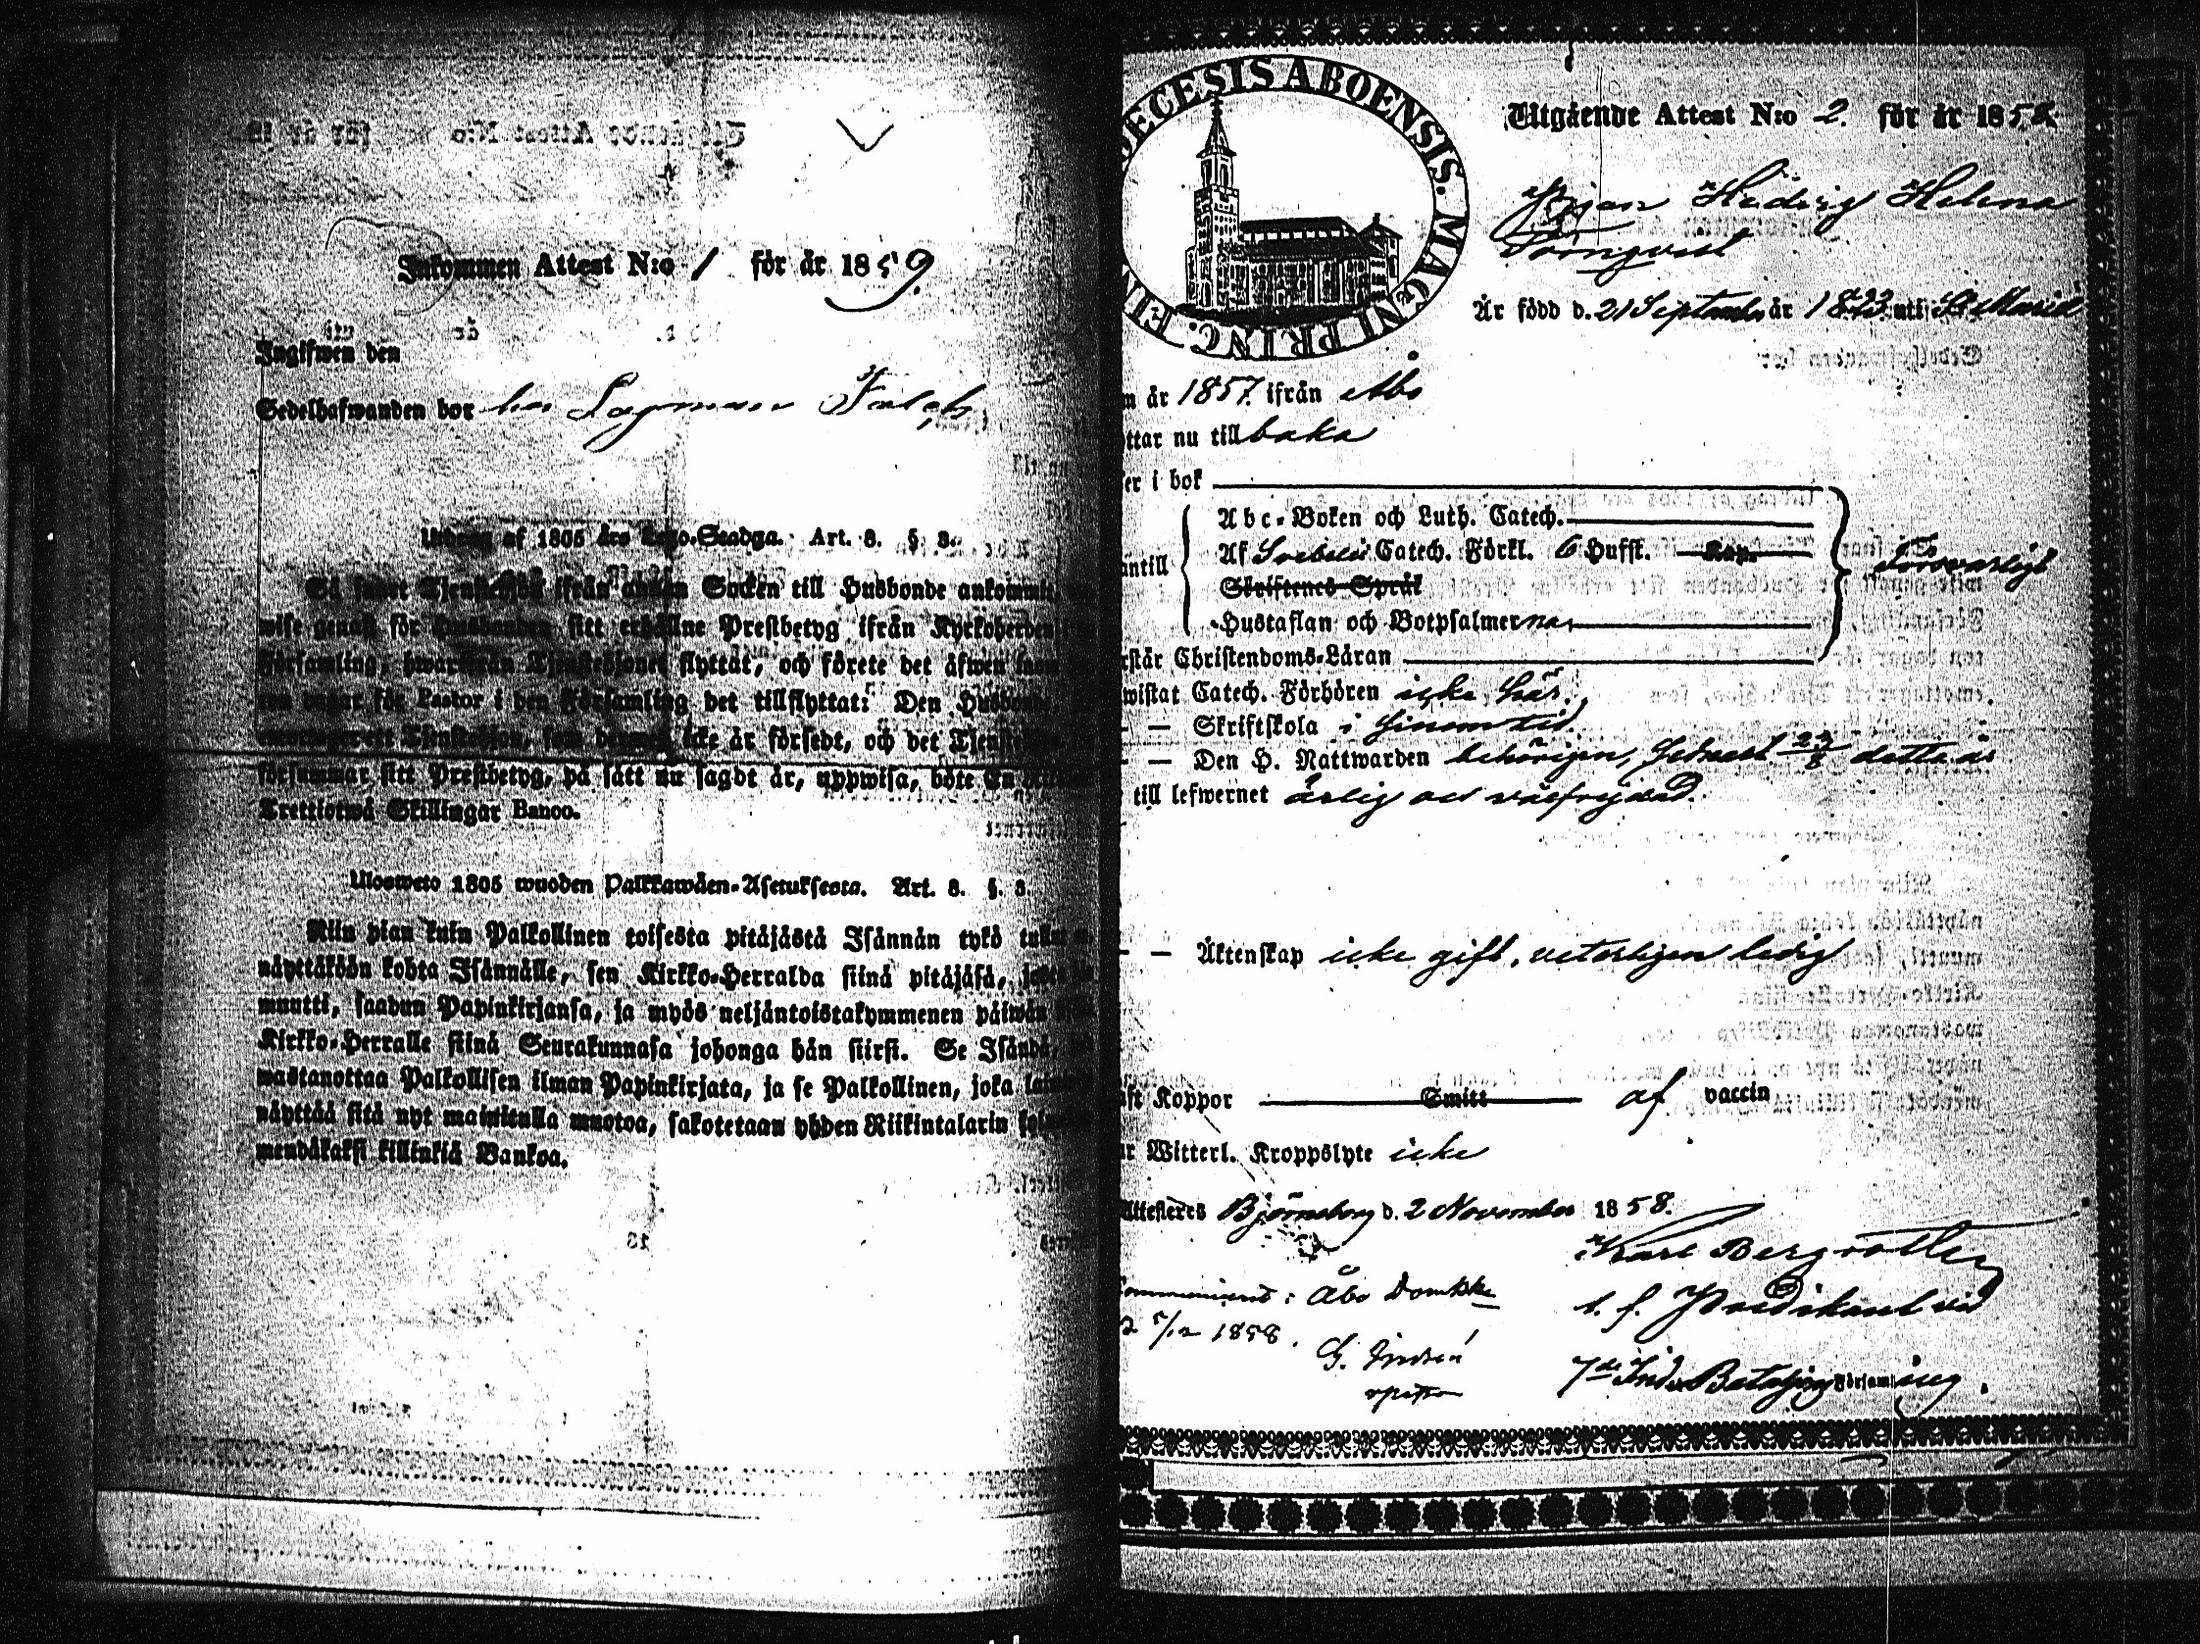 Inkommen Attest N:o 1 för år 1859.
Ingifwen den
Sedelhafwanden bor hos Lagman Falck
Utdrag af 1805 års Lego-Stadga. Art. 8. §. 3.
Så snart Tjenstehjon ifrån annan Socken till Husbonde ankommit
wise genast för Husbonden sitt erhållne Prestbetyg ifrån Kyrkoherden
Församling, hwarifrån Tjenstehjonet flyttat, och förete det äfwen inom
ton dagar för Pastor i den Församling det tillflyttat: Den Husbonde
emottager ett Tjenstehjon, som dermed icke är försedt, och det Tjenste
försummar sitt Prestbetyg, på sätt nu sagdt är, uppwisa, böte En
Trettiotwå Skillingar Banco.
Ulosweto 1805 wuoden Palkkawäen-Asetuksesta. Art. 8. §. 3.
Niin pian kuin Palkollinen toisesta pitäjästä Isännän tykö
näyttäköön kohta Isännälle, sen Kirkko-Herralda siinä pitäjäsä,
muutti, saadun Papinkirjansa, ja myös neljäntoistakymmenen päiwän
Kirkko-Herralle siinä Seurakunnasa johonga hän siirsi. Se Isändä,
wastanottaa Palkollisen ilman Papinkirjata, ja se Palkollinen, joka
näyttää sitä nyt mainitulla muotoa, sakotetaan yhden Riikintalarin
mendäkaksi killinkiä Bankoa.
DIOECESIS ABOENSIS. MAGNI PRINC. FIN
Utgående Attest N:o 2. för år 1858.
Pigan Hedvig Helena
Törnqvist
Är född d. 21 September år 1823 uti St Marie
m år 1857 ifrån Åbo
ttar nu tillbaka
er i bok
Abc-Boken och Luth. Catech.
Af Svebelii Catech. Förkl. 6 Hufst. Kap.
antill
Försvarligt
Skriftenes Språk
Hustaflan och Botpsalmerna,
rstår Christendoms-Läran
wistat Catech. Förhören icke här.
— Skriftskola i sinom tid
— Den H. Nattwarden behörigen, sednast 22/8 detta år
till lefwernet ärlig och välfrejdad.
— Äktenskap icke gift, veterligen ledig
aft Koppor Smitt af vaccin
ar Witterl. Kroppslyte icke
Attesteres Björneborg d. 2 November 1858.
Karl Bergroth
t. f. Predikant vid
7de Ind. Bataljons Församling.
ommunicerat i Åbo Domkka
d. 5/12 1858.